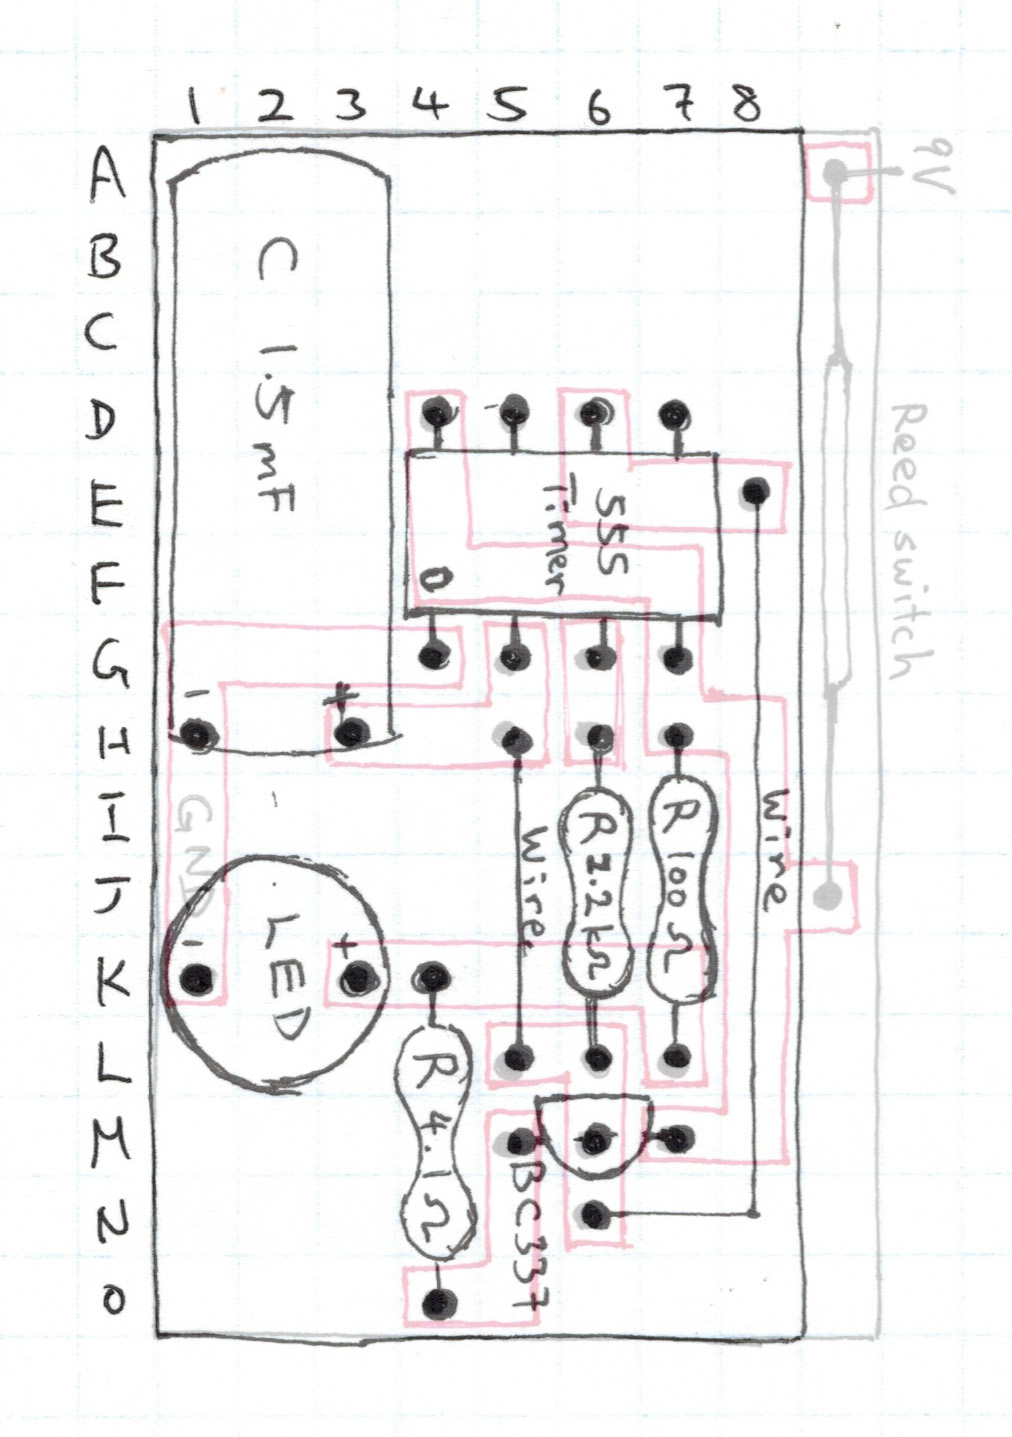 1 2 3 4 5 6 7 8
A
B
C
D
E
F
G
H
I
J
K
L
M
N
O
9V
Reed switch
C 1.5mF
- +
555
Timer
GND
- +
LED
Wire
R 2.2kΩ
R 100Ω
Wire
R 4.1Ω
BC337